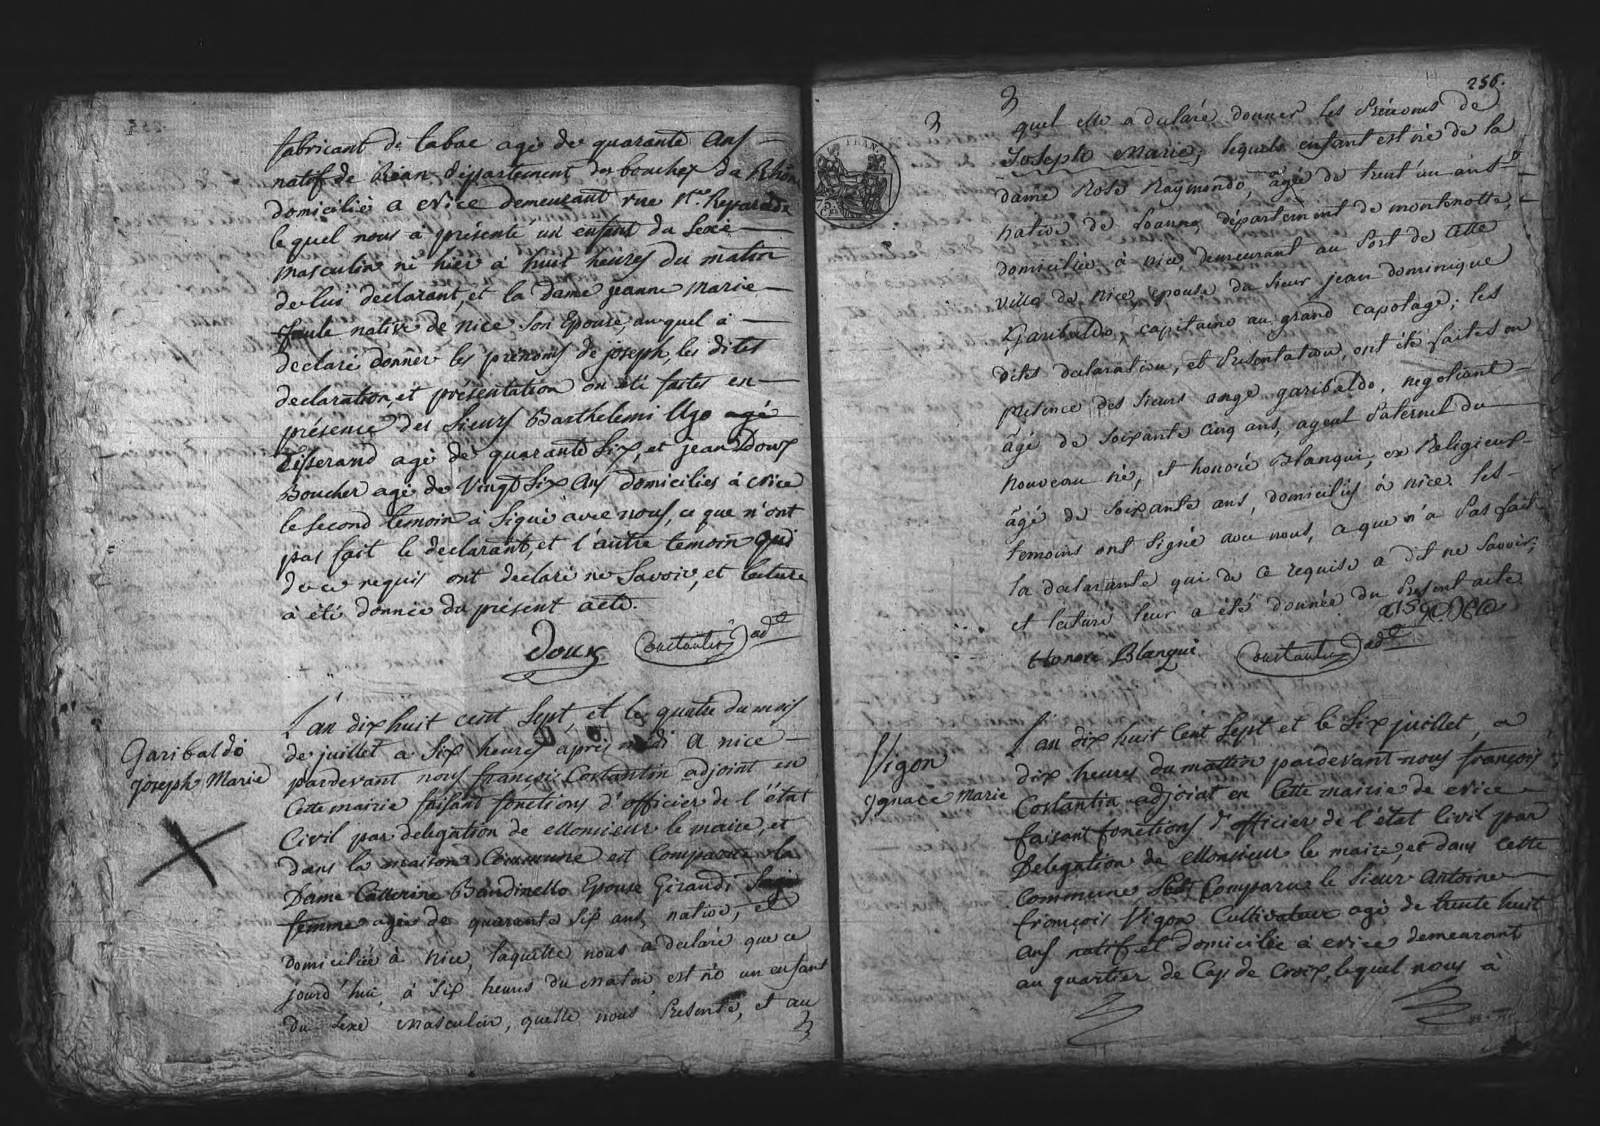 fabricant de tabac agé de quarante ans
natif de Rian département des bouches du Rhône
domicilié a Nice demeurant rue Ste. Reparade
lequel nous a présenté un enfant du sexe
masculin né hier à huit heures du matin
de lui déclarant, et la dame jeanne Marie
native de nice son Epouse, auquel à
declaré donner les prenoms de joseph, les dites
declaration, et présentation on été faites en
présence des sieurs Barthelemi Ugo agé
Tisserand agé de quarante six, et jean Doux
Boucher agé de vingt six ans domiciliés à Nice
le second temoin à signé avec nous, ce que n'ont
pas fait le declarant, et l'autre temoin qui
de ce requis ont declaré ne savoir, et lecture
à été donnée du présent acte.
Doux Constantin adt
Garibaldi
joseph Marie
L'an dix huit cent sept, et le quatre du mois
de juillet a six heures après midi a nice
pardevant nous françois Constantin adjoint en
Cette mairie faisant fonctions d'officier de l'état
Civil par delegation de Monsieur le maire, et
dans la maison Commune est Comparue la
Dame Catterine Baudinello Epouse Giraudi sage
femme agée de quarante six ans, native, et
domiciliée à nice, laquelle nous a declaré que ce
jourd'hui, à six heures du matin, est né un enfant
du sexe Masculin, quelle nous Presente, et au
256.
quel elle a declaré donner les Prénoms de
Joseph Marie, lequel enfant est né de la
dame Rose Raymondo, âgée de trent'un ans
native de Loanno, département de montenotte,
domiciliée à nice, demeurant au Port de Cette
ville de nice, epouse du sieur jean dominique
Garibaldo, capitaine au grand capotage; les
dites declaration, et Présentation, ont été faites en
présence des sieurs ange garibaldo, negotiant
âgé de soixante cinq ans, ayeul Paternel du
nouveau né, et honoré Blanqui, ex Religieux
âgé de soixante ans, domiciliés à nice. les
temoins ont signé avec nous, a que n'a Pas fait
la declarante qui de ce requise a dit ne savoir;
et lecture leur a été donnée du Present acte.
Honoré Blanqui Constantin adt
Vigon
Ignace Marie
L'an dix huit Cent Sept et le six juillet, a
dix heures du mattin pardevant nous françois
Constantin adjoint en Cette mairie de Nice
faisant fonctions d'officier de l'état Civil par
Delegation de Monsieur le maire, et dans Cette
Commune, est Comparu le sieur Antoine
françois Vigon Cultivateur agé de trente huit
ans natif et domicilié à Nice demeurant
au quartier de Cap de Croix, lequel nous à